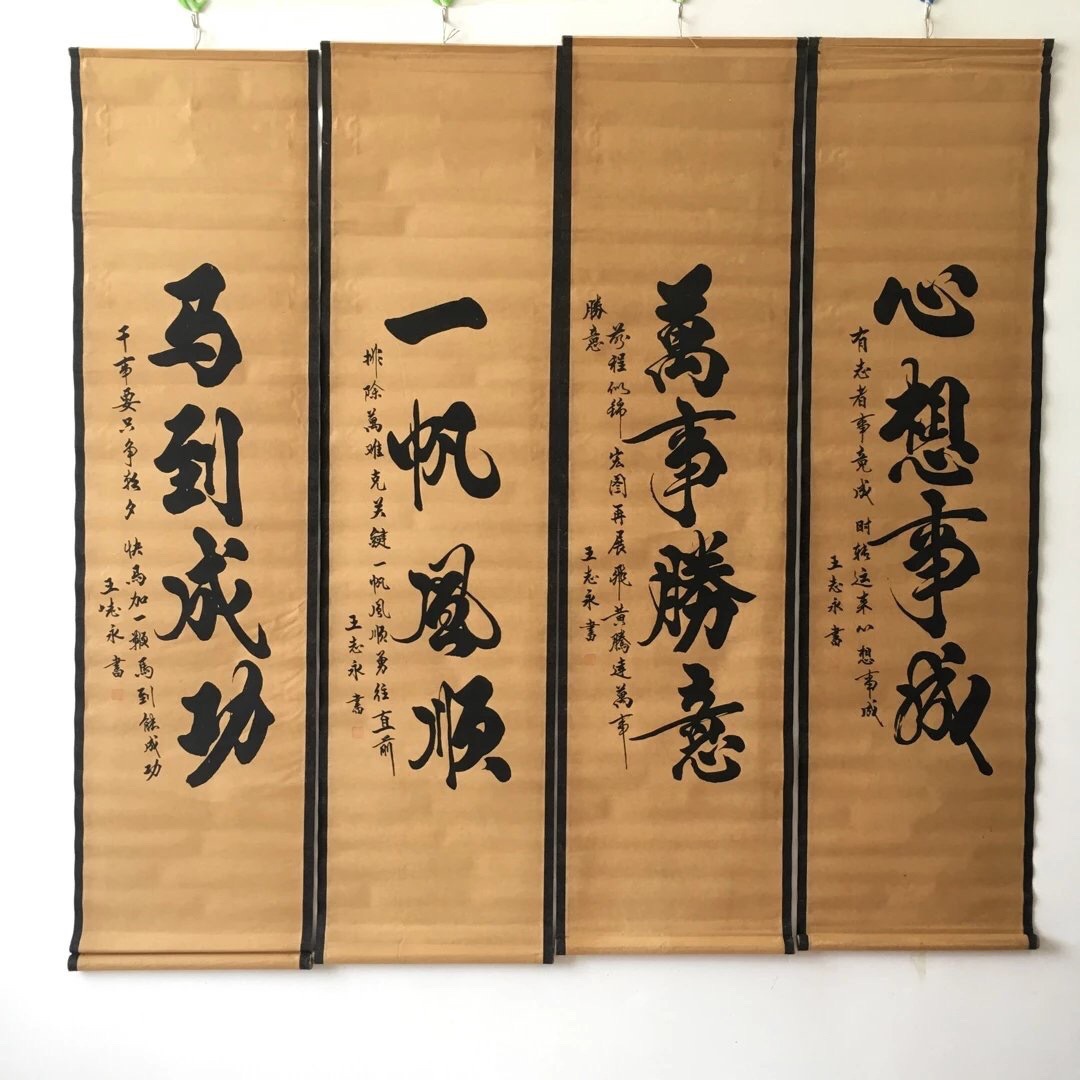 心想事成
有志者事竟成 时转运来心想事成
王志永書
萬事勝意
前程似锦 宏图再展飛黄腾達萬事
勝意
王志永書
一帆風顺
排除萬难克关鍵一帆風顺勇往直前
王志永書
马到成功
干事要只争朝夕 快馬加一鞭馬到能成功
王志永書